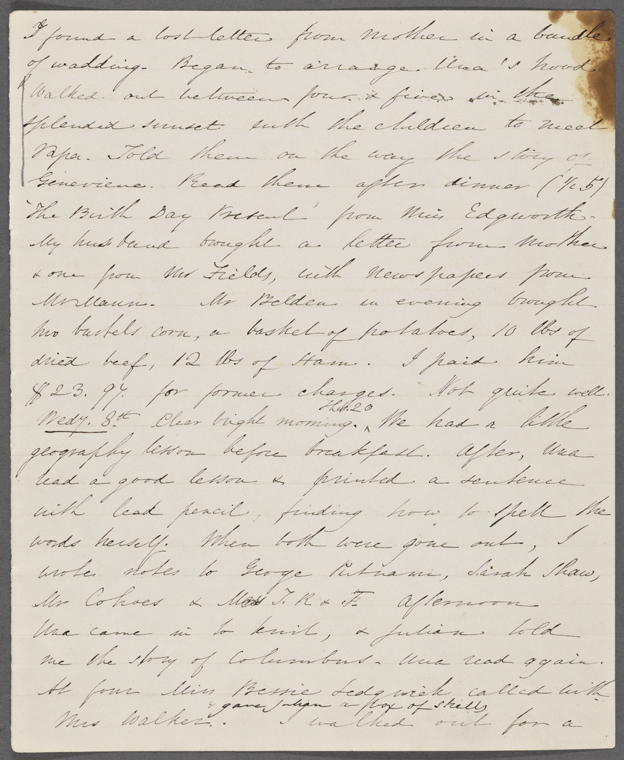 I found a lost letter from mother in a bundle
of wadding. Began to arrange Una's hood
Walked out between four & five in the
splendid sunset with the children to meet
Papa. Told them on the way the story of
Genevieve. Read them after dinner (1/2 5)
'The Birth Day Present' from Miss Edgworth.
My husband brought a letter from mother
& one from Mr Fields, with newspapers from
Mr Mann. Mr Belden in evening brought
two bushels corn, a basket of potatoes, 10 lbs of
dried beef, 12 lbs of Ham. I paid him
$23.97. for former charges. Not quite well.
Wedy. 8th Clear bright morning. We had a little
geography lesson before breakfast. After, Una
read a good lesson & printed a sentence
with lead pencil, finding how to spell the
words herself. When both were gone out, I
wrote notes to George Putnam, Sarah Shaw,
Mr & T. R & F. Afternoon
Una came in to knit, & Julian told
me the story of Columbus. Una read again.
At four Miss Bessie Sedgwick called with
Mrs Walker. & gave Julian a box of shells
I walked out for a